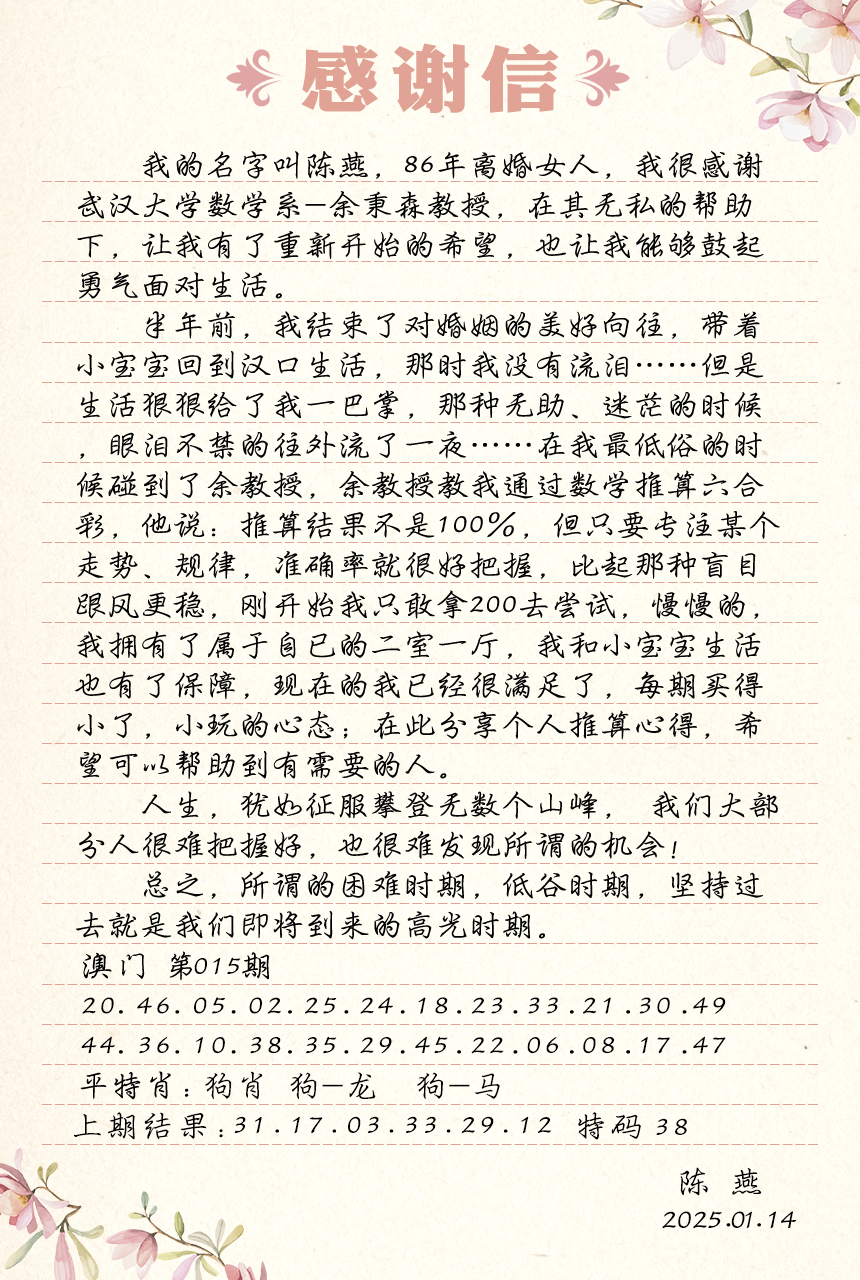 感谢信
我的名字叫陈燕，86年离婚女人，我很感谢
武汉大学数学系—余秉森教授，在其无私的帮助
下，让我有了重新开始的希望，也让我能够鼓起
勇气面对生活。
半年前，我结束了对婚姻的美好向往，带着
小宝宝回到汉口生活，那时我没有流泪……但是
生活狠狠给了我一巴掌，那种无助、迷茫的时候
，眼泪不禁的往外流了一夜……在我最低俗的时
候碰到了余教授，余教授教我通过数学推算六合
彩，他说：推算结果不是100%，但只要专注某个
走势、规律，准确率就很好把握，比起那种盲目
跟风更稳，刚开始我只敢拿200去尝试，慢慢的，
我拥有了属于自已的二室一厅，我和小宝宝生活
也有了保障，现在的我已经很满足了，每期买得
小了，小玩的心态；在此分享个人推算心得，希
望可以帮助到有需要的人。
人生，犹如征服攀登无数个山峰， 我们大部
分人很难把握好，也很难发现所谓的机会！
总之，所谓的困难时期，低谷时期，坚持过
去就是我们即将到来的高光时期。
澳门 第015期
20.46.05.02.25.24.18.23.33.21.30.49
44.36.10.38.35.29.45.22.06.08.17.47
平特肖：狗肖 狗—龙 狗—马
上期结果：31.17.03.33.29.12 特码 38
陈 燕
2025.01.14